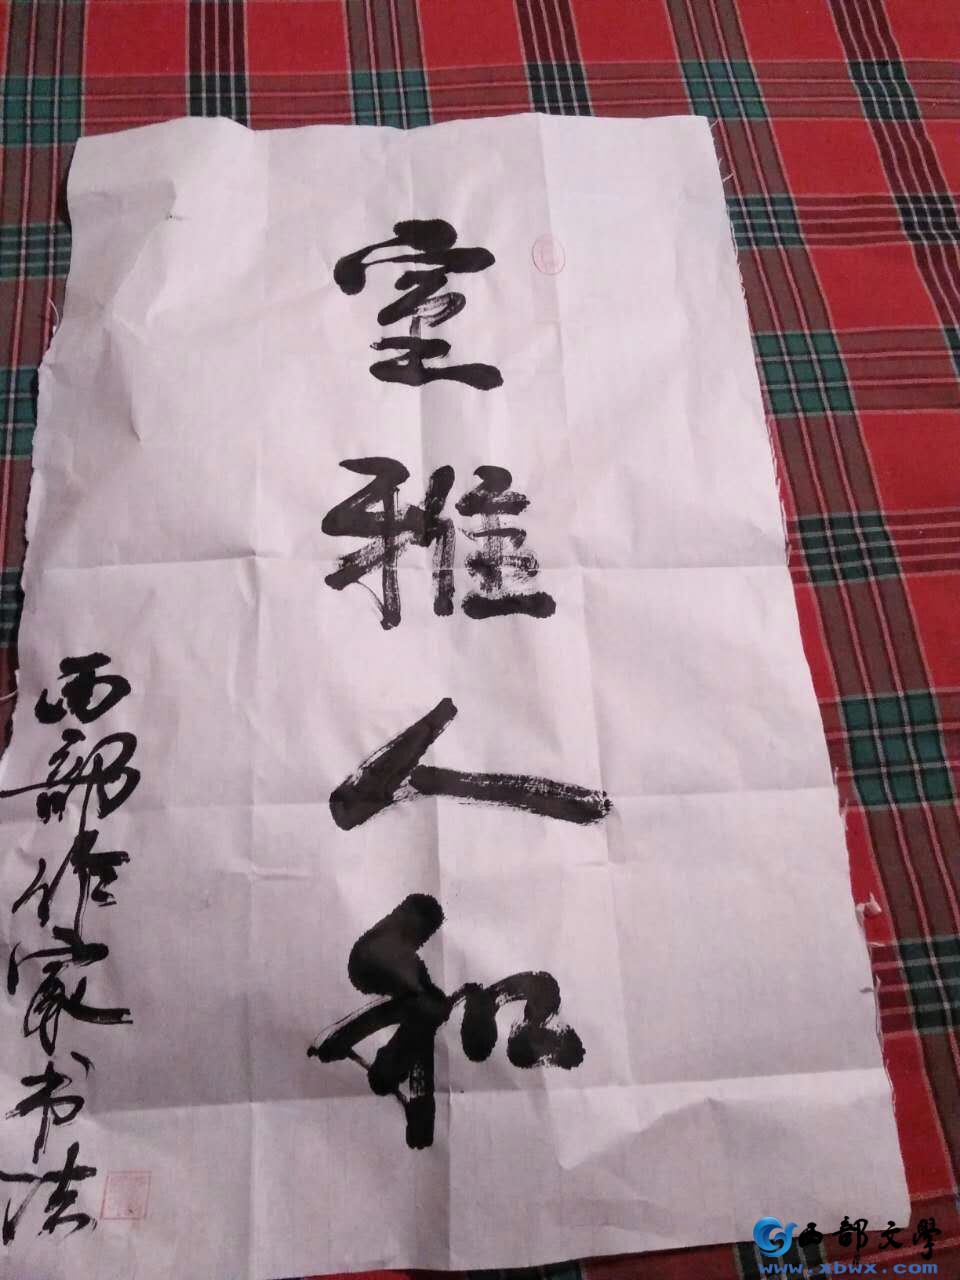 室雅人和
西部作家书法
西部文學
www.xbwx.com